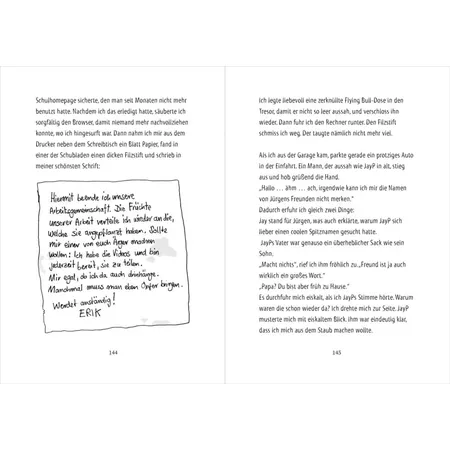 Schulhomepage sicherte, den man seit Monaten nicht mehr
benutzt hatte. Nachdem ich das erledigt hatte, säuberte ich
sorgfältig den Browser, damit niemand mehr nachvollziehen
konnte, wo ich hingesurft war. Dann nahm ich mir aus dem
Drucker neben dem Schreibtisch ein Blatt Papier, fand in
einer der Schubladen einen dicken Filzstift und schrieb in
meiner schönsten Schrift:
Hiermit beende ich unsere
Arbeitsgemeinschaft. Die Früchte
unserer Arbeit verteile ich wieder an die,
welche sie angepflanzt haben. Sollte
mir einer von euch Ärger machen
wollen: Ich habe die Videos und bin
jederzeit bereit, sie zu teilen.
Mir egal, ob ich da auch drinhänge.
Manchmal muss man eben Opfer bringen.
Werdet anständig!
ERIK
144
Ich legte liebevoll eine zerknüllte Flying Bull-Dose in den
Tresor, damit er nicht so leer aussah, und verschloss ihn
wieder. Dann fuhr ich den Rechner runter. Den Filzstift
schmiss ich weg. Der taugte nämlich nicht mehr viel.
Als ich aus der Garage kam, parkte gerade ein protziges Auto
in der Einfahrt. Ein Mann, der aussah wie JayP in alt, stieg
aus und hob grüßend die Hand.
„Hallo ... ähm ... ach, irgendwie kann ich mir die Namen
von Jürgens Freunden nicht merken."
Dadurch erfuhr ich gleich zwei Dinge:
JayP hieß Jürgen, was auch erklärte, warum JayP sich
lieber einen coolen Spitznamen gesucht hatte.
JayPs Vater war genauso ein überheblicher Sack wie sein
Sohn.
„Macht nichts", rief ich ihm fröhlich zu. „Freund ist ja auch
wirklich ein großes Wort."
„Papa? Du bist aber früh zu Hause."
Es durchfuhr mich eiskalt, als ich JayPs Stimme hörte. Warum
waren die schon wieder da? Ich drehte mich zur Seite. JayP
musterte mich mit eiskaltem Blick. Ihm war eindeutig klar,
dass ich mich aus dem Staub machen wollte.
145